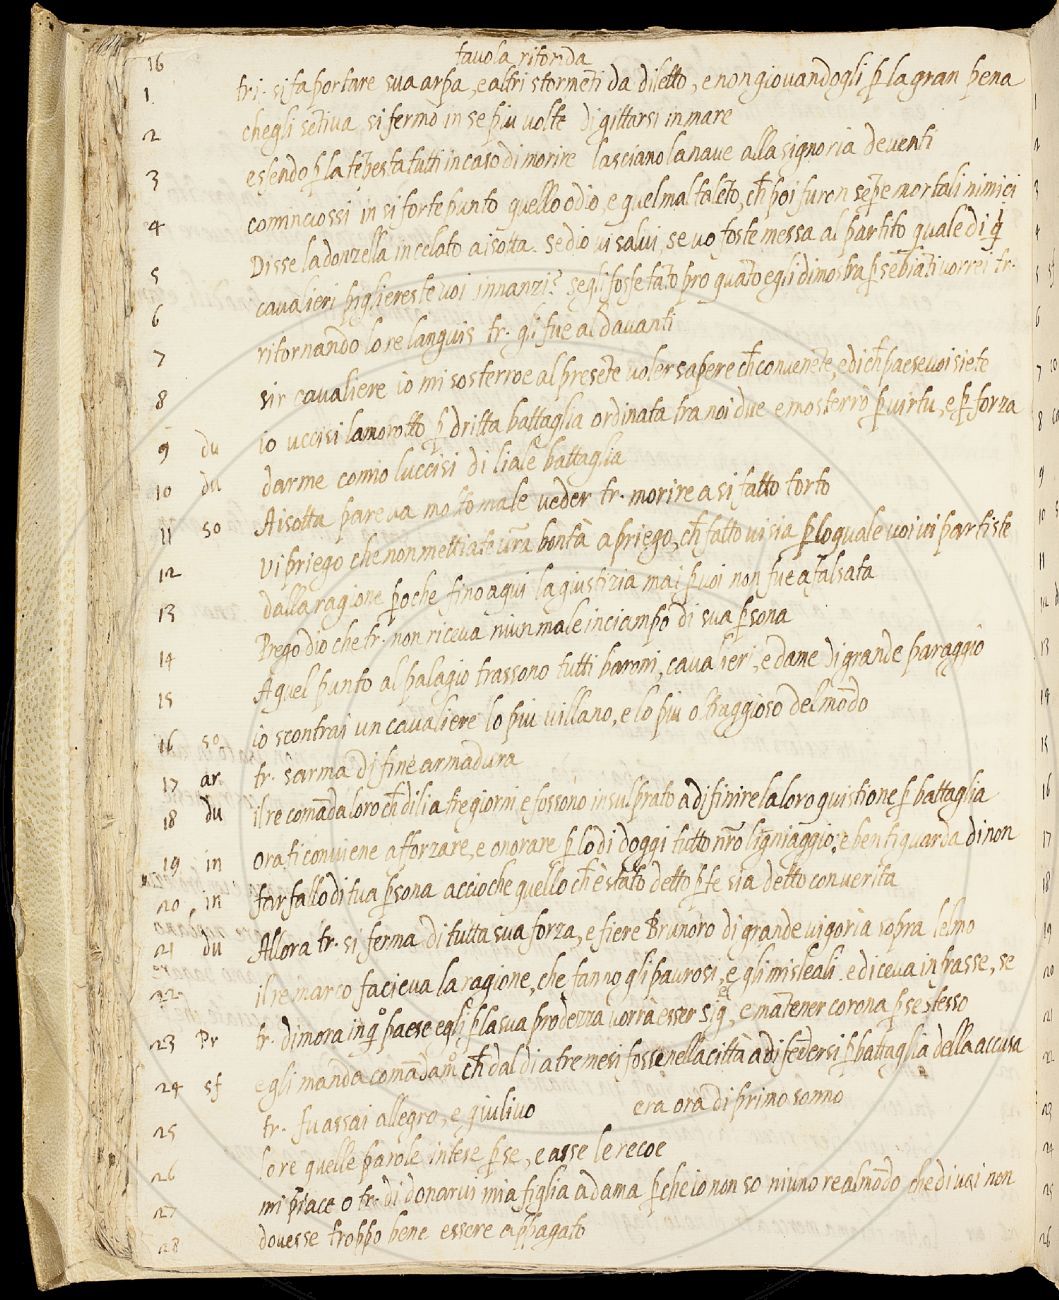 16 tavola ritonda
1 tri. si fa portare sua arpa, e altri stormēti da diletto, e non giovandogli p̱ la gran pena
2 chegli sētiva si fermo in se piu volte di gittarsi in mare
3 essendo p̱ la tēpesta tutti in caso di morire lasciano la nave alla signoria de venti
4 cominciossi in si forte punto quello odio, e quel mal talēto, ch̄ poi furon sēpe mortali nimici
Disse la donzella in celato a isotta. se dio vi salvi se vo foste messa al partito quale di q̄
5 cavalieri pigliereste voi innanzi? segli fosse tāto pro quāto egli dimostra p̱ sēbiāti vorrei tr.
6 ritornando lo re languis tr. gli fue al davanti
7 sir cavaliere io mi sosterroe al presēte voler sapere ch̄ convenēte, e di ch̄ paese voi siete
8 io uccisi lamorotto p̱ dritta battaglia ordinata tra noi due e mosterrò p̱ virtu, e p̱ forza
9 du darme comio luccisi di liale battaglia
10 du A isotta pareva molto male veder tr. morire a si fatto torto
11 so vi priego che non mettiate vr̄a bontà a priego, ch̄ fatto vi sia p̱ lo quale voi vi partiste
12 dalla ragione p̱oche fino a qui la giustizia mai p̱ voi non fue afalsata
13 Prego dio che tr. non riceva niun male inciampo di sua p̱sona
14 A quel punto al palagio trassono tutti baroni, cavalieri, e dame di grande paraggio
15 io scontrai un cavaliere lo piu villano, e lo piu oltraggioso del mōdo
16 so tr. sarma di fine armadura
17 ar. il re comāda loro ch̄ di li a tre giorni e fossono in sul prato a difinire la loro quistione p̱ battaglia
18 du Ora ti conviene afforzare, e onorare p̱ lo di doggi tutto nr̄o ligniaggio: e ben ti guarda di non
19 in far fallo di tua p̱sona accioche quello ch̄ è stato detto p̱ te sia detto con verita
20 in Allora tr. si ferma di tutta sua forza, e fiere Brunoro di grande vigoria sopra lelmo
21 du il re marco facieva la ragione, che fanno gli paurosi, e gli misleali. e diceva infrasse, se
22 tr. dimora in q̄o paese egli p̱ la sua prodezza vorrà esser sig.e, e mātener corona p̱ se stesso
23 Pr egli manda comādam.o ch̄ dal di a tre mesi fosse nella città a difēdersi p̱ battaglia della accusa
24 sf tr. fu assai allegro, e giulivo era ora di primo sonno
25 lo re quelle parole intese p̱ se, e asse le recoe
26 mi piace o tr. di donarvi mia figlia a dama p̱ che io non so niuno re al mōdo che di voi non
27 dovesse troppo bene essere appagato
28